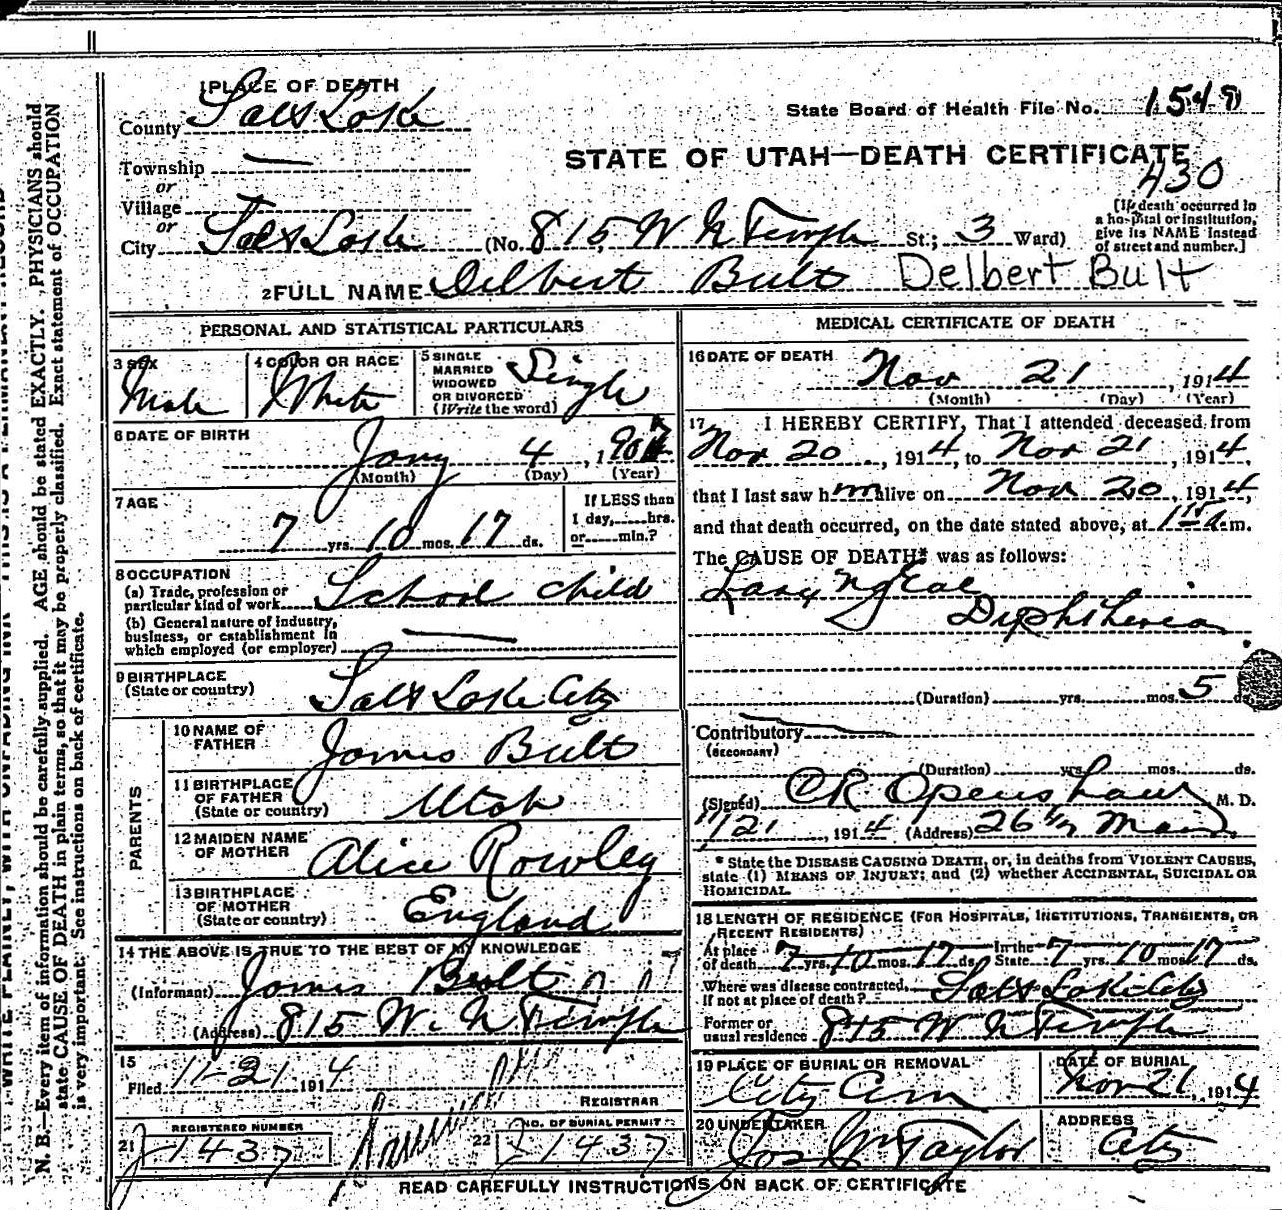 1 PLACE OF DEATH
County Salt Lake
State Board of Health File No. 1548
STATE OF UTAH—DEATH CERTIFICATE
430
Township —
or
Village
or
City Salt Lake (No. 815 W N Temple St.; 3 Ward)
[If death occurred in a hospital or institution, give its NAME instead of street and number.]
2 FULL NAME Delbert Bult Delbert Bult
PERSONAL AND STATISTICAL PARTICULARS
3 SEX Male
4 COLOR OR RACE White
5 SINGLE MARRIED WIDOWED OR DIVORCED (Write the word) Single
6 DATE OF BIRTH
Jany 4, 190
(Month) (Day) (Year)
7 AGE
7 yrs. 10 mos. 17 ds.
If LESS than 1 day,......hrs. or......min.?
8 OCCUPATION
(a) Trade, profession or particular kind of work School child
(b) General nature of industry, business, or establishment in which employed (or employer) —
9 BIRTHPLACE
(State or country) Salt Lake City
PARENTS
10 NAME OF FATHER James Bult
11 BIRTHPLACE OF FATHER (State or country) Utah
12 MAIDEN NAME OF MOTHER Alice Rowley
13 BIRTHPLACE OF MOTHER (State or country) England
14 THE ABOVE IS TRUE TO THE BEST OF MY KNOWLEDGE
(Informant) James Bult
(Address) 815 W. N Temple
15
Filed 11-21 1914
REGISTRAR
21 REGISTERED NUMBER 1437
22 NO. OF BURIAL PERMIT 1437
MEDICAL CERTIFICATE OF DEATH
16 DATE OF DEATH
Nov 21, 1914
(Month) (Day) (Year)
17 I HEREBY CERTIFY, That I attended deceased from
Nov 20, 1914, to Nov 21, 1914,
that I last saw him alive on Nov 20, 1914,
and that death occurred, on the date stated above, at 1 15 A. m.
The CAUSE OF DEATH* was as follows:
Laryngeal
Diphtheria
(Duration) yrs. mos. 5 ds.
Contributory —
(SECONDARY)
(Duration) yrs. mos. ds.
(Signed) C R Openshaw M. D.
11/21, 1914 (Address) 26 1/2 N Main
* State the DISEASE CAUSING DEATH, or, in deaths from VIOLENT CAUSES,
state (1) MEANS OF INJURY; and (2) whether ACCIDENTAL, SUICIDAL OR
HOMICIDAL.
18 LENGTH OF RESIDENCE (FOR HOSPITALS, INSTITUTIONS, TRANSIENTS, OR
RECENT RESIDENTS)
At place of death 7 yrs. 10 mos. 17 ds. In the State 7 yrs. 10 mos 17 ds.
Where was disease contracted, if not at place of death? Salt Lake City
Former or usual residence 815 W N Temple
19 PLACE OF BURIAL OR REMOVAL City Cem
DATE OF BURIAL Nov 21, 1914
20 UNDERTAKER Jos Wm Taylor
ADDRESS City
READ CAREFULLY INSTRUCTIONS ON BACK OF CERTIFICATE
N. B.—Every item of information should be carefully supplied. AGE should be stated EXACTLY. PHYSICIANS should
state CAUSE OF DEATH in plain terms, so that it may be properly classified. Exact statement of OCCUPATION
is very important. See instructions on back of certificate.